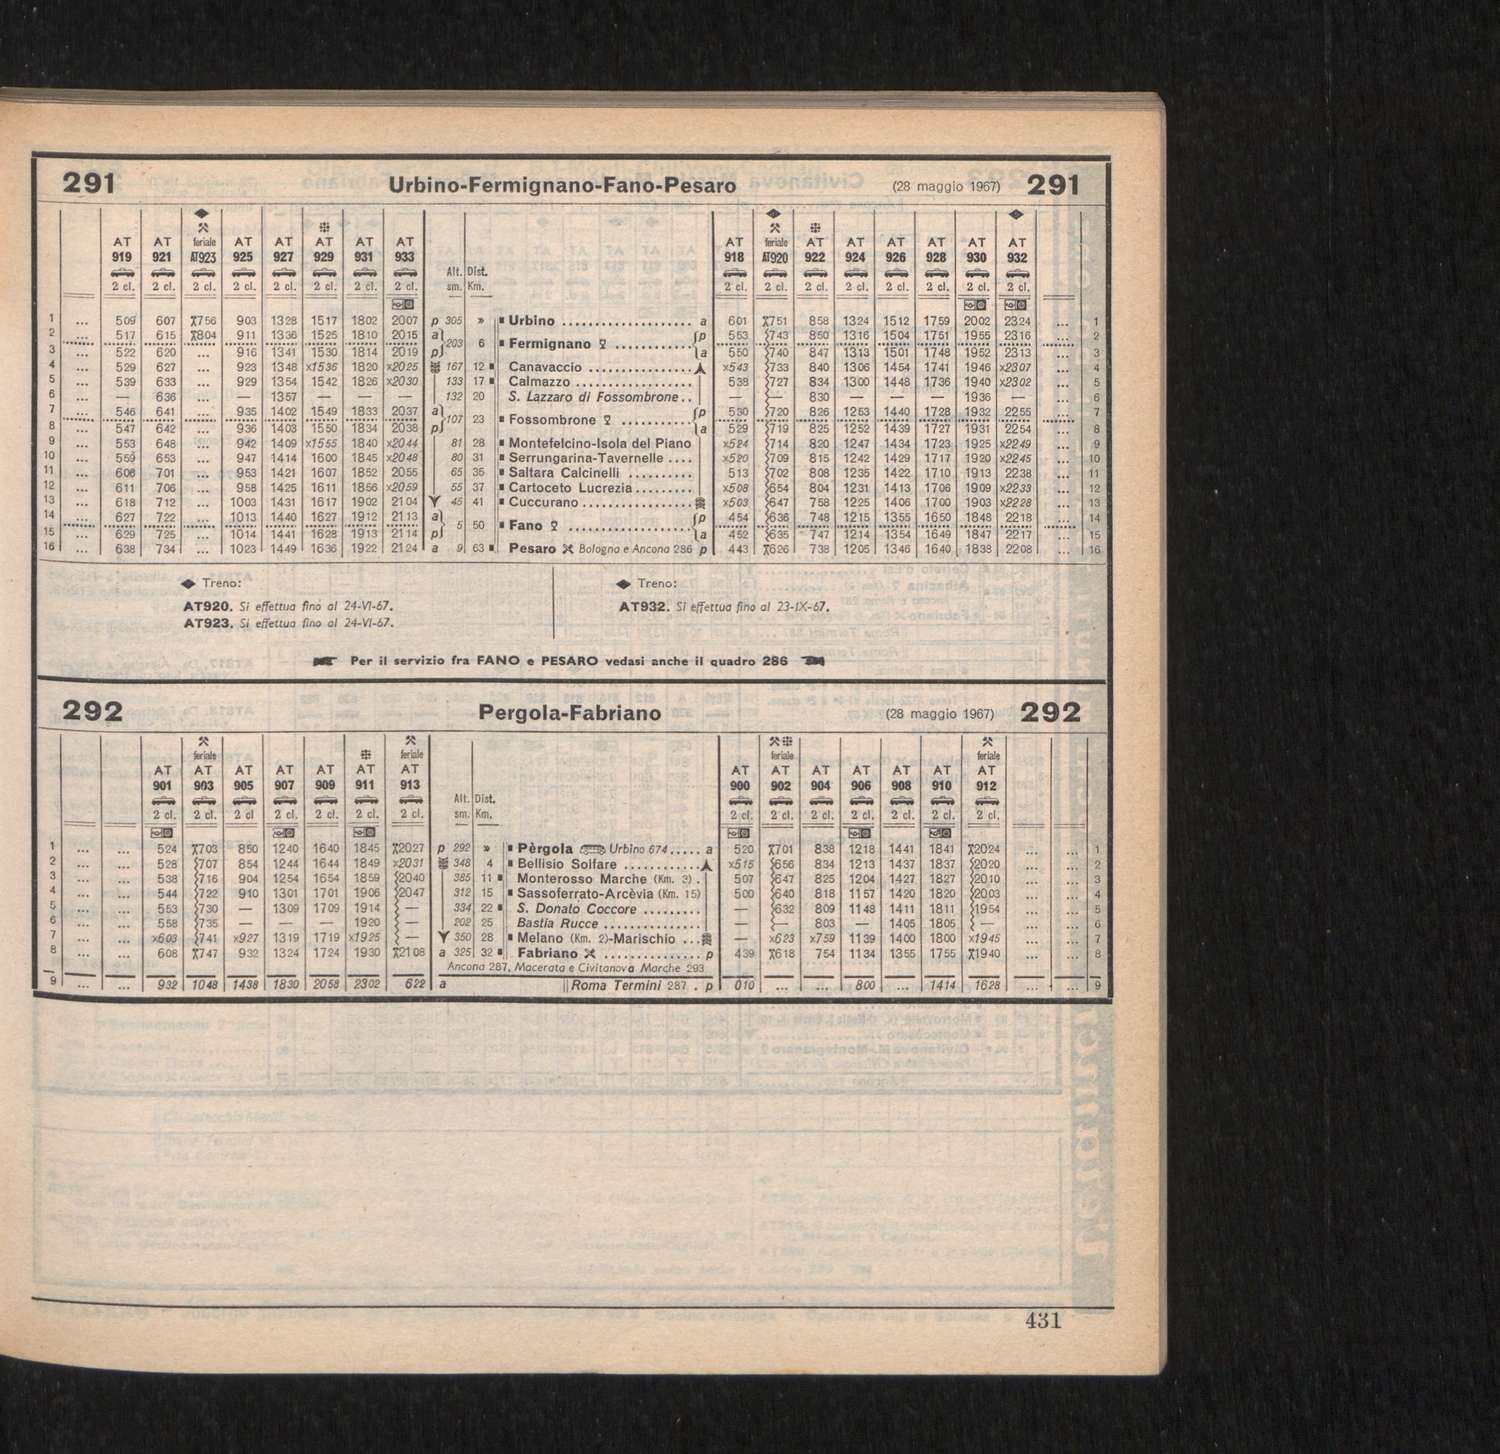 291 Urbino-Fermignano-Fano-Pesaro (28 maggio 1967) 291
feriale feriale
AT AT AT923 AT AT AT AT AT AT AT920 AT AT AT AT AT AT
919 921 925 927 929 931 933 Alt. Dist. 918 922 924 926 928 930 932
2 cl. 2 cl. 2 cl. 2 cl. 2 cl. 2 cl. 2 cl. 2 cl. sm. Km. 2 cl. 2 cl. 2 cl. 2 cl. 2 cl. 2 cl. 2 cl. 2 cl.
1 ... 509 607 756 903 1328 1517 1802 2007 p 305 » Urbino ... a 601 751 858 1324 1512 1759 2002 2324 ... 1
2 ... 517 615 804 911 1336 1525 1810 2015 a 203 6 Fermignano ... p 553 743 850 1316 1504 1751 1955 2316 ... 2
3 ... 522 620 ... 916 1341 1530 1814 2019 p a 550 740 847 1313 1501 1748 1952 2313 ... 3
4 ... 529 627 ... 923 1348 x1536 1820 x2025 167 12 Canavaccio ... x543 733 840 1306 1454 1741 1946 x2307 ... 4
5 ... 539 633 ... 929 1354 1542 1826 x2030 133 17 Calmazzo ... 538 727 834 1300 1448 1736 1940 x2302 ... 5
6 ... — 636 ... — 1357 — — — 132 20 S. Lazzaro di Fossombrone.. — — 830 — — — 1936 — ... 6
7 ... 546 641 ... 935 1402 1549 1833 2037 a 107 23 Fossombrone ... p 530 720 826 1253 1440 1728 1932 2255 ... 7
8 ... 547 642 ... 936 1403 1550 1834 2038 p a 529 719 825 1252 1439 1727 1931 2254 ... 8
9 ... 553 648 ... 942 1409 x1555 1840 x2044 81 28 Montefelcino-Isola del Piano x524 714 820 1247 1434 1723 1925 x2249 ... 9
10 ... 559 653 ... 947 1414 1600 1845 x2048 80 31 Serrungarina-Tavernelle .... x520 709 815 1242 1429 1717 1920 x2245 ... 10
11 ... 606 701 ... 953 1421 1607 1852 2055 65 35 Saltara Calcinelli ... 513 702 808 1235 1422 1710 1913 2238 ... 11
12 ... 611 706 ... 958 1425 1611 1856 x2059 55 37 Cartoceto Lucrezia ... x508 654 804 1231 1413 1706 1909 x2233 ... 12
13 ... 618 712 ... 1003 1431 1617 1902 2104 45 41 Cuccurano ... x503 647 758 1225 1406 1700 1903 x2228 ... 13
14 ... 627 722 ... 1013 1440 1627 1912 2113 a 5 50 Fano ... p 454 636 748 1215 1355 1650 1848 2218 ... 14
15 ... 629 725 ... 1014 1441 1628 1913 2114 p a 452 635 747 1214 1354 1649 1847 2217 ... 15
16 ... 638 734 ... 1023 1449 1636 1922 2124 a 9 63 Pesaro Bologna e Ancona 286 p 443 626 738 1205 1346 1640 1838 2208 ... 16
Treno: Treno:
AT920. Si effettua fino al 24-VI-67. AT932. Si effettua fino al 23-IX-67.
AT923. Si effettua fino al 24-VI-67.
Per il servizio fra FANO e PESARO vedasi anche il quadro 286
292 Pergola-Fabriano (28 maggio 1967) 292
feriale feriale feriale feriale
AT AT AT AT AT AT AT AT AT AT AT AT AT AT
901 903 905 907 909 911 913 Alt. Dist. 900 902 904 906 908 910 912
2 cl. 2 cl. 2 cl 2 cl. 2 cl. 2 cl. 2 cl. sm. Km. 2 cl. 2 cl. 2 cl. 2 cl. 2 cl. 2 cl. 2 cl.
1 ... ... 524 703 850 1240 1640 1845 2027 p 292 » Pèrgola Urbino 674 ..... a 520 701 838 1218 1441 1841 2024 ... ... 1
2 ... ... 528 707 854 1244 1644 1849 x2031 348 4 Bellisio Solfare ... x515 656 834 1213 1437 1837 2020 ... ... 2
3 ... ... 538 716 904 1254 1654 1859 2040 385 11 Monterosso Marche (Km. 3) . 507 647 825 1204 1427 1827 2010 ... ... 3
4 ... ... 544 722 910 1301 1701 1906 2047 312 15 Sassoferrato-Arcèvia (Km. 15) 500 640 818 1157 1420 1820 2003 ... ... 4
5 ... ... 553 730 — 1309 1709 1914 — 334 22 S. Donato Coccore ... — 632 809 1148 1411 1811 1954 ... ... 5
6 ... ... 558 735 — — — 1920 — 202 25 Bastia Rucce ... — — 803 — 1405 1805 — ... ... 6
7 ... ... x603 741 x927 1319 1719 x1925 — 350 28 Melano (Km. 2)-Marischio ... — x623 x759 1139 1400 1800 x1945 ... ... 7
8 ... ... 608 747 932 1324 1724 1930 2108 a 325 32 Fabriano ... p 439 618 754 1134 1355 1755 1940 ... ... 8
Ancona 287, Macerata e Civitanova Marche 293
9 ... ... 932 1048 1438 1830 2058 2302 622 a Roma Termini 287 . p 010 ... ... 800 ... 1414 1628 ... ... 9
431